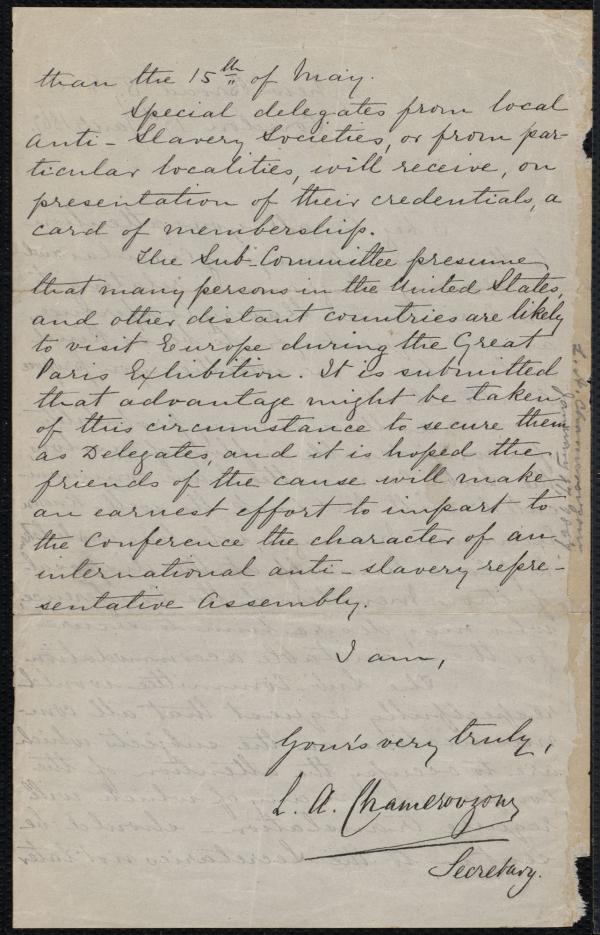 than the 15th of May.
Special delegates from local
Anti-Slavery Societies, or from par-
ticular localities, will receive, on
presentation of their credentials, a
card of membership.
The Sub-Committee presume
that many persons in the United States,
and other distant countries are likely
to visit Europe during the Great
Paris Exhibition. It is submitted
that advantage might be taken
of this circumstance to secure them
as Delegates, and it is hoped the
friends of the cause will make
an earnest effort to impart to
the Conference the character of an
international anti-slavery repre-
sentative Assembly.
I am,
Your's very truly,
L. A. Chamerovzow
Secretary.
L. A. Chamerovzow